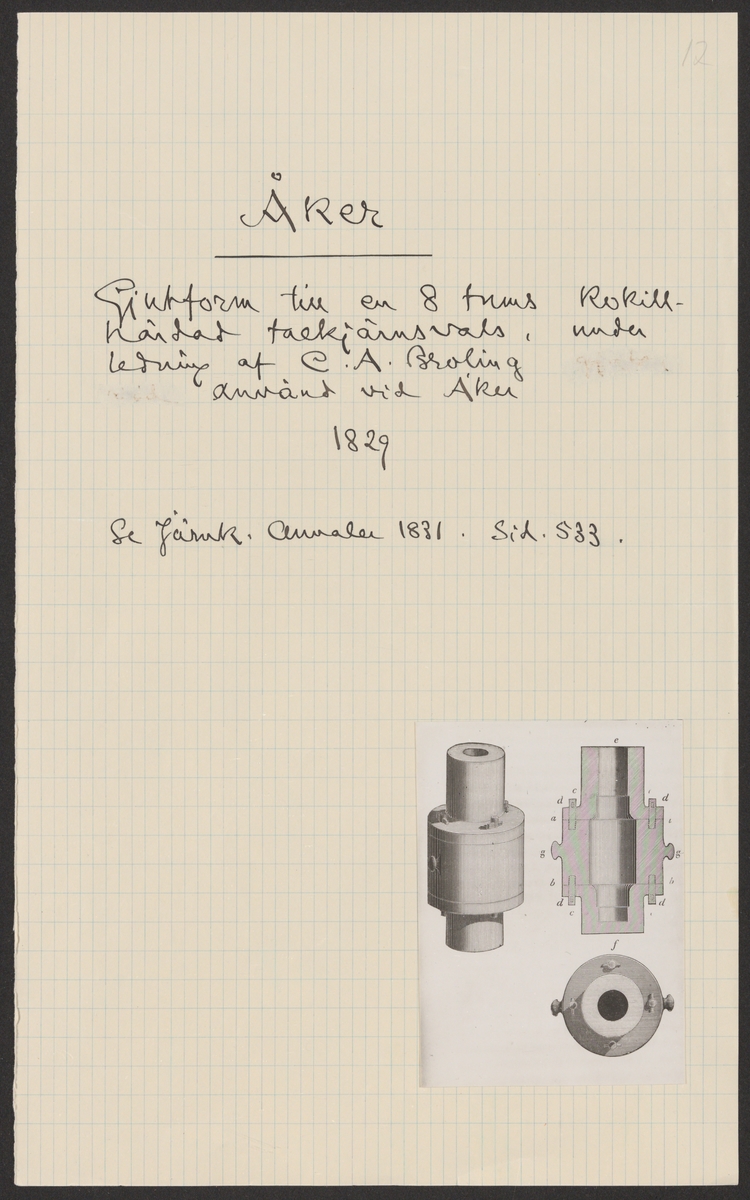 12
Åker
Gjutform till en 8 tums Kokill-
härdad tackjärnsvals, under
ledning af C. A. Broling
använd vid Åker
1829
Se Järnk. Annaler 1831. Sid. 533.
e
c i
d d
a i
g g
b b
d d
c
f